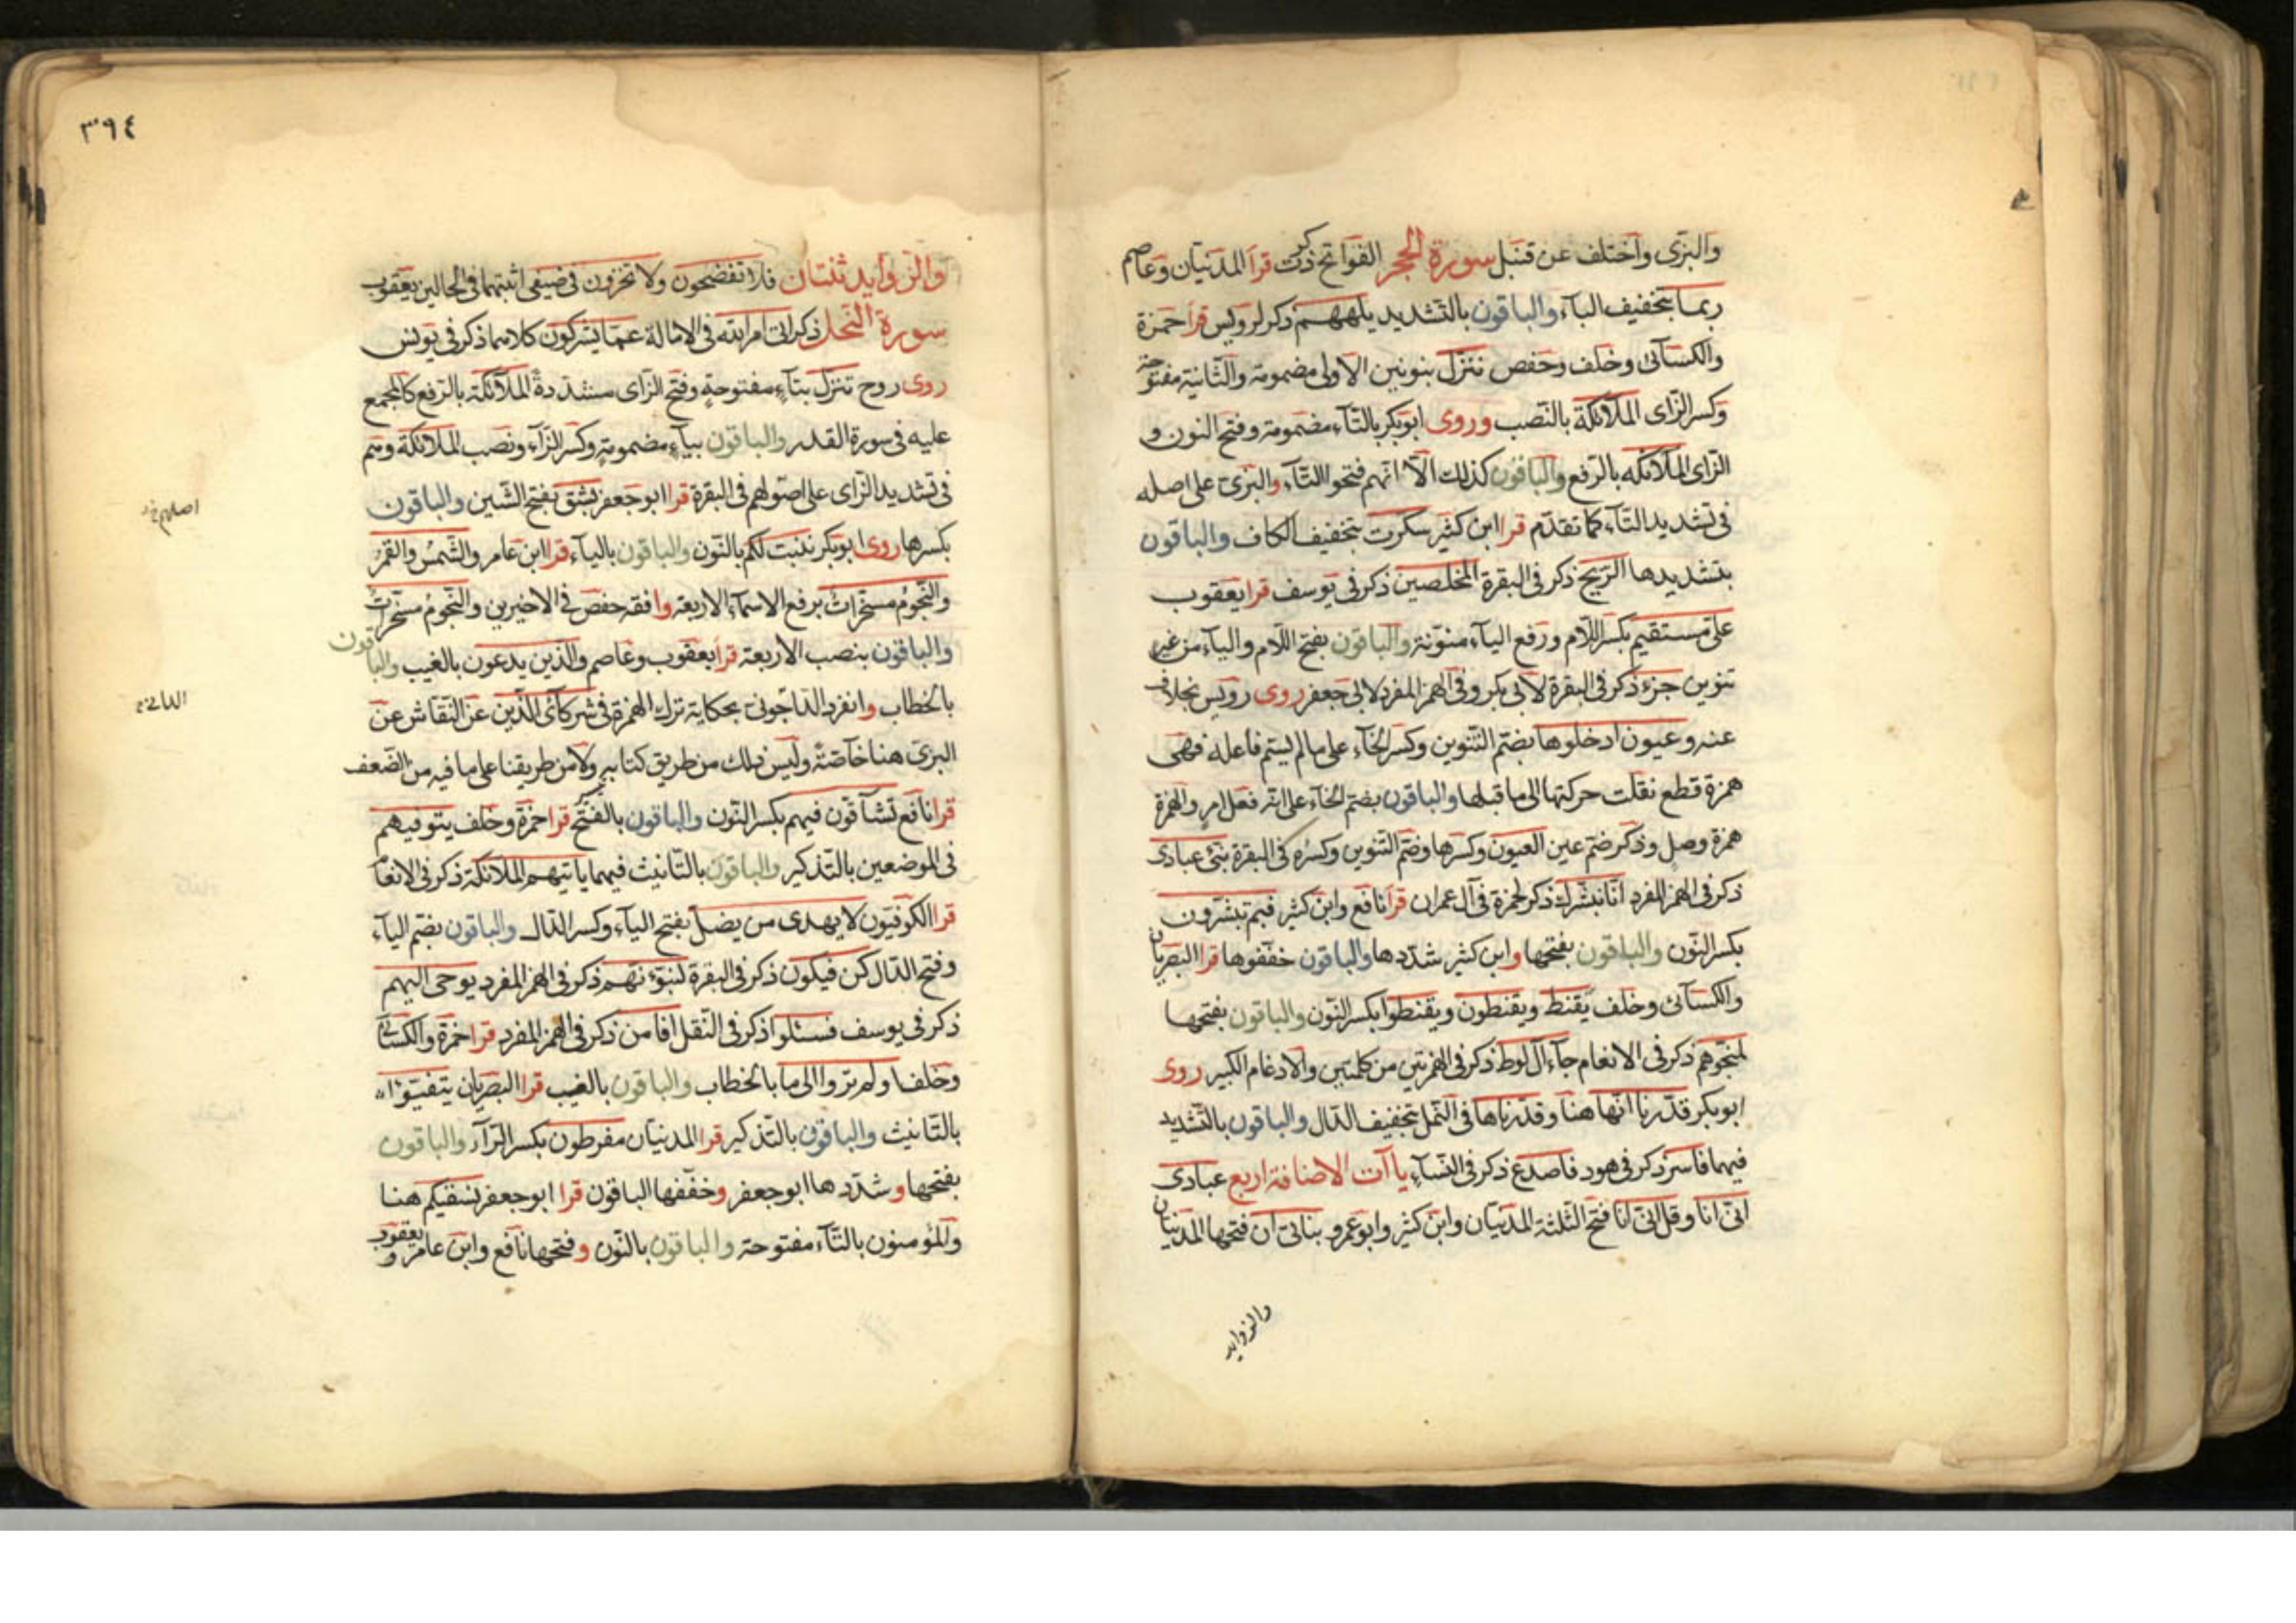 والبزى واختلف عن قنبل سورة الحجر الفواتح ذكرت قرأ المدنيان وعاصم
ربما بتخفيف الباء والباقون بالتشديد يلههم ذكر لرويس قرأ حمزة
والكسائى وخلف وحفص ننزل بنونين الاولى مضمومة والثانية مفتوحة
وكسر الزاى الملائكة بالنصب وروى ابو بكر بالتاء مضمومة وفتح النون و
الزاى الملائكه بالرفع والباقون كذلك الا انهم فتحوا التاء والبزى على اصله
فى تشديد التاء كما تقدم قرا ابن كثير سكرت بتخفيف الكاف والباقون
بتشديدها الريح ذكر فى البقرة المخلصين ذكر فى يوسف قرا يعقوب
على مستقيم بكسر اللام ورفع الياء منونة والباقون بفتح اللام والياء من غير
تنوين جزء ذكر فى البقرة لابى بكر وفى الهمز المفرد لابى جعفر روى رويس بخلاف
عنه وعيون ادخلوها بضم التنوين وكسر الخاء على ما لم يسم فاعله فهى
همزة قطع نقلت حركتها الى ما قبلها والباقون بضم الخاء على انه فعل امر والهمزة
همزة وصل وذكر ضم عين العيون وكسرها وضم التنوين وكسره فى البقرة نبئ عبادى
ذكر فى الهمز المفرد انا نبشرك ذكر لحمزة فى آل عمران قرأ نافع وابن كثير فبم تبشرون
بكسر النون والباقون بفتحها وابن كثير شددها والباقون خففوها قرا البصريان
والكسائى وخلف يقنط ويقنطون ويقنطوا بكسر النون والباقون بفتحها
لمنجوهم ذكر فى الانعام جاء آل لوط ذكر فى الهمزتين من كلمتين والادغام الكبير روى
ابو بكر قدرنا انها هنا وقدرناها فى النمل بتخفيف الدال والباقون بالتشديد
فيهما فاسر ذكر فى هود فاصدع ذكر فى النساء يا آت الاضافة اربع عبادى
انى انا وقل انى انا فتح الثلثة المدنيان وابن كثير وابو عمرو بناتى ان فتحها المدنيان
والزوايد
٣٩٤
والزوايد ثنتان فلا تفضحون ولا تخزون فى ضيفى اثبتهما فى الحالين يعقوب
سورة النحل ذكر اتى امر الله فى الامالة عما يشركون كلاهما ذكر فى يونس
روى روح تنزل بتاء مفتوحة وفتح الزاى مشددة الملائكة بالرفع كالمجمع
عليه فى سورة القدر والباقون بياء مضمومة وكسر الزاء ونصب الملائكة وهم
فى تشديد الزاى على اصولهم فى البقرة قرا ابو جعفر بشق بفتح الشين والباقون
بكسرها روى ابو بكر ننبت لكم بالنون والباقون بالياء قرا ابن عامر والشمس والقمر
والنجوم مسخرات برفع الاسماء الاربعة وافقه حفص فى الاخيرين والنجوم مسخرات
والباقون بنصب الاربعة قرأ يعقوب وعاصم والذين يدعون بالغيب والباقون
بالخطاب وانفرد الداجونى بحكاية ترك الهمزة فى شركائى الذين عن النقاش عن
البزى هنا خاصة وليس ذلك من طريق كتابه ولا من طريقنا على ما فيه من الضعف
قرا نافع تشاقون فيهم بكسر النون والباقون بالفتح قرا حمزة وخلف يتوفيهم
فى الموضعين بالتذكير والباقون بالتانيث فيهما ياتيهم الملائكة ذكر فى الانعام
قرا الكوفيون لا يهدى من يضل بفتح الياء وكسر الدال والباقون بضم الياء
وفتح الدال كن فيكون ذكر فى البقرة لنبوئنهم ذكر فى الهمز المفرد يوحى اليهم
ذكر فى يوسف فسئلوا ذكر فى النقل افامن ذكر فى الهمز المفرد قرا حمزة والكسائى
وخلف اولم تروا الى ما بالخطاب والباقون بالغيب قرا البصريان يتفيؤا
بالتانيث والباقون بالتذكير قرا المدنيان مفرطون بكسر الراء والباقون
بفتحها وشددها ابو جعفر وخففها الباقون قرا ابو جعفر نسقيكم هنا
والمؤمنون بالتاء مفتوحة والباقون بالنون وفتحها نافع وابن عامر ويعقوب